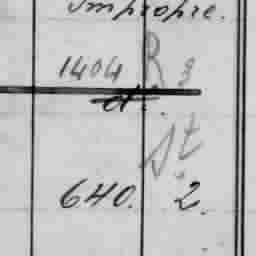 impropre.
1404 R 3
d.
St
640. 2.